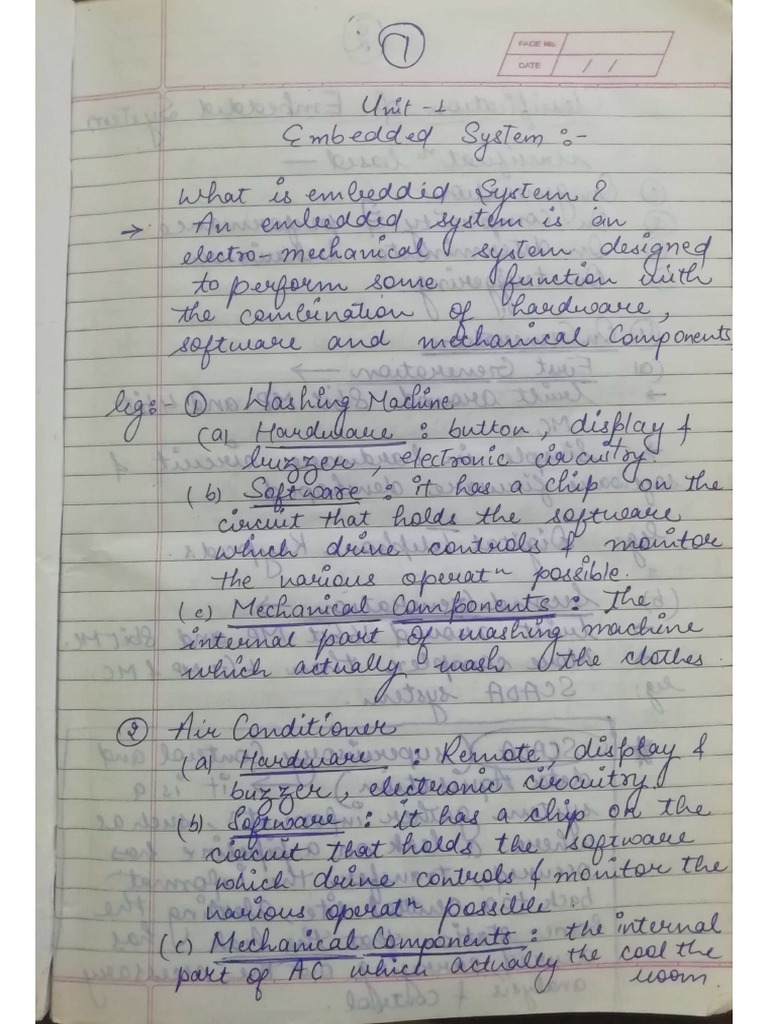 1
PAGE No.
DATE / /
Unit -1
Embedded System :-
What is embedded System ?
→ An embedded system is an
electro-mechanical system designed
to perform some function with
the combination of hardware,
software and mechanical Components
eg:- ① Washing Machine
(a) Hardware : button, display &
buzzer, electronic circuitry.
(b) Software : it has a chip on the
circuit that holds the software
which drive controls & monitor
the various operatⁿ possible.
(c) Mechanical Components : The
internal part of washing machine
which actually wash the clothes.
② Air Conditioner
(a) Hardware : Remote, display &
buzzer, electronic circuitry.
(b) Software : it has a chip on the
circuit that holds the software
which drive controls & monitor the
various operatⁿ possible
(c) Mechanical Components : the internal
part of AC which actually the cool the
room.